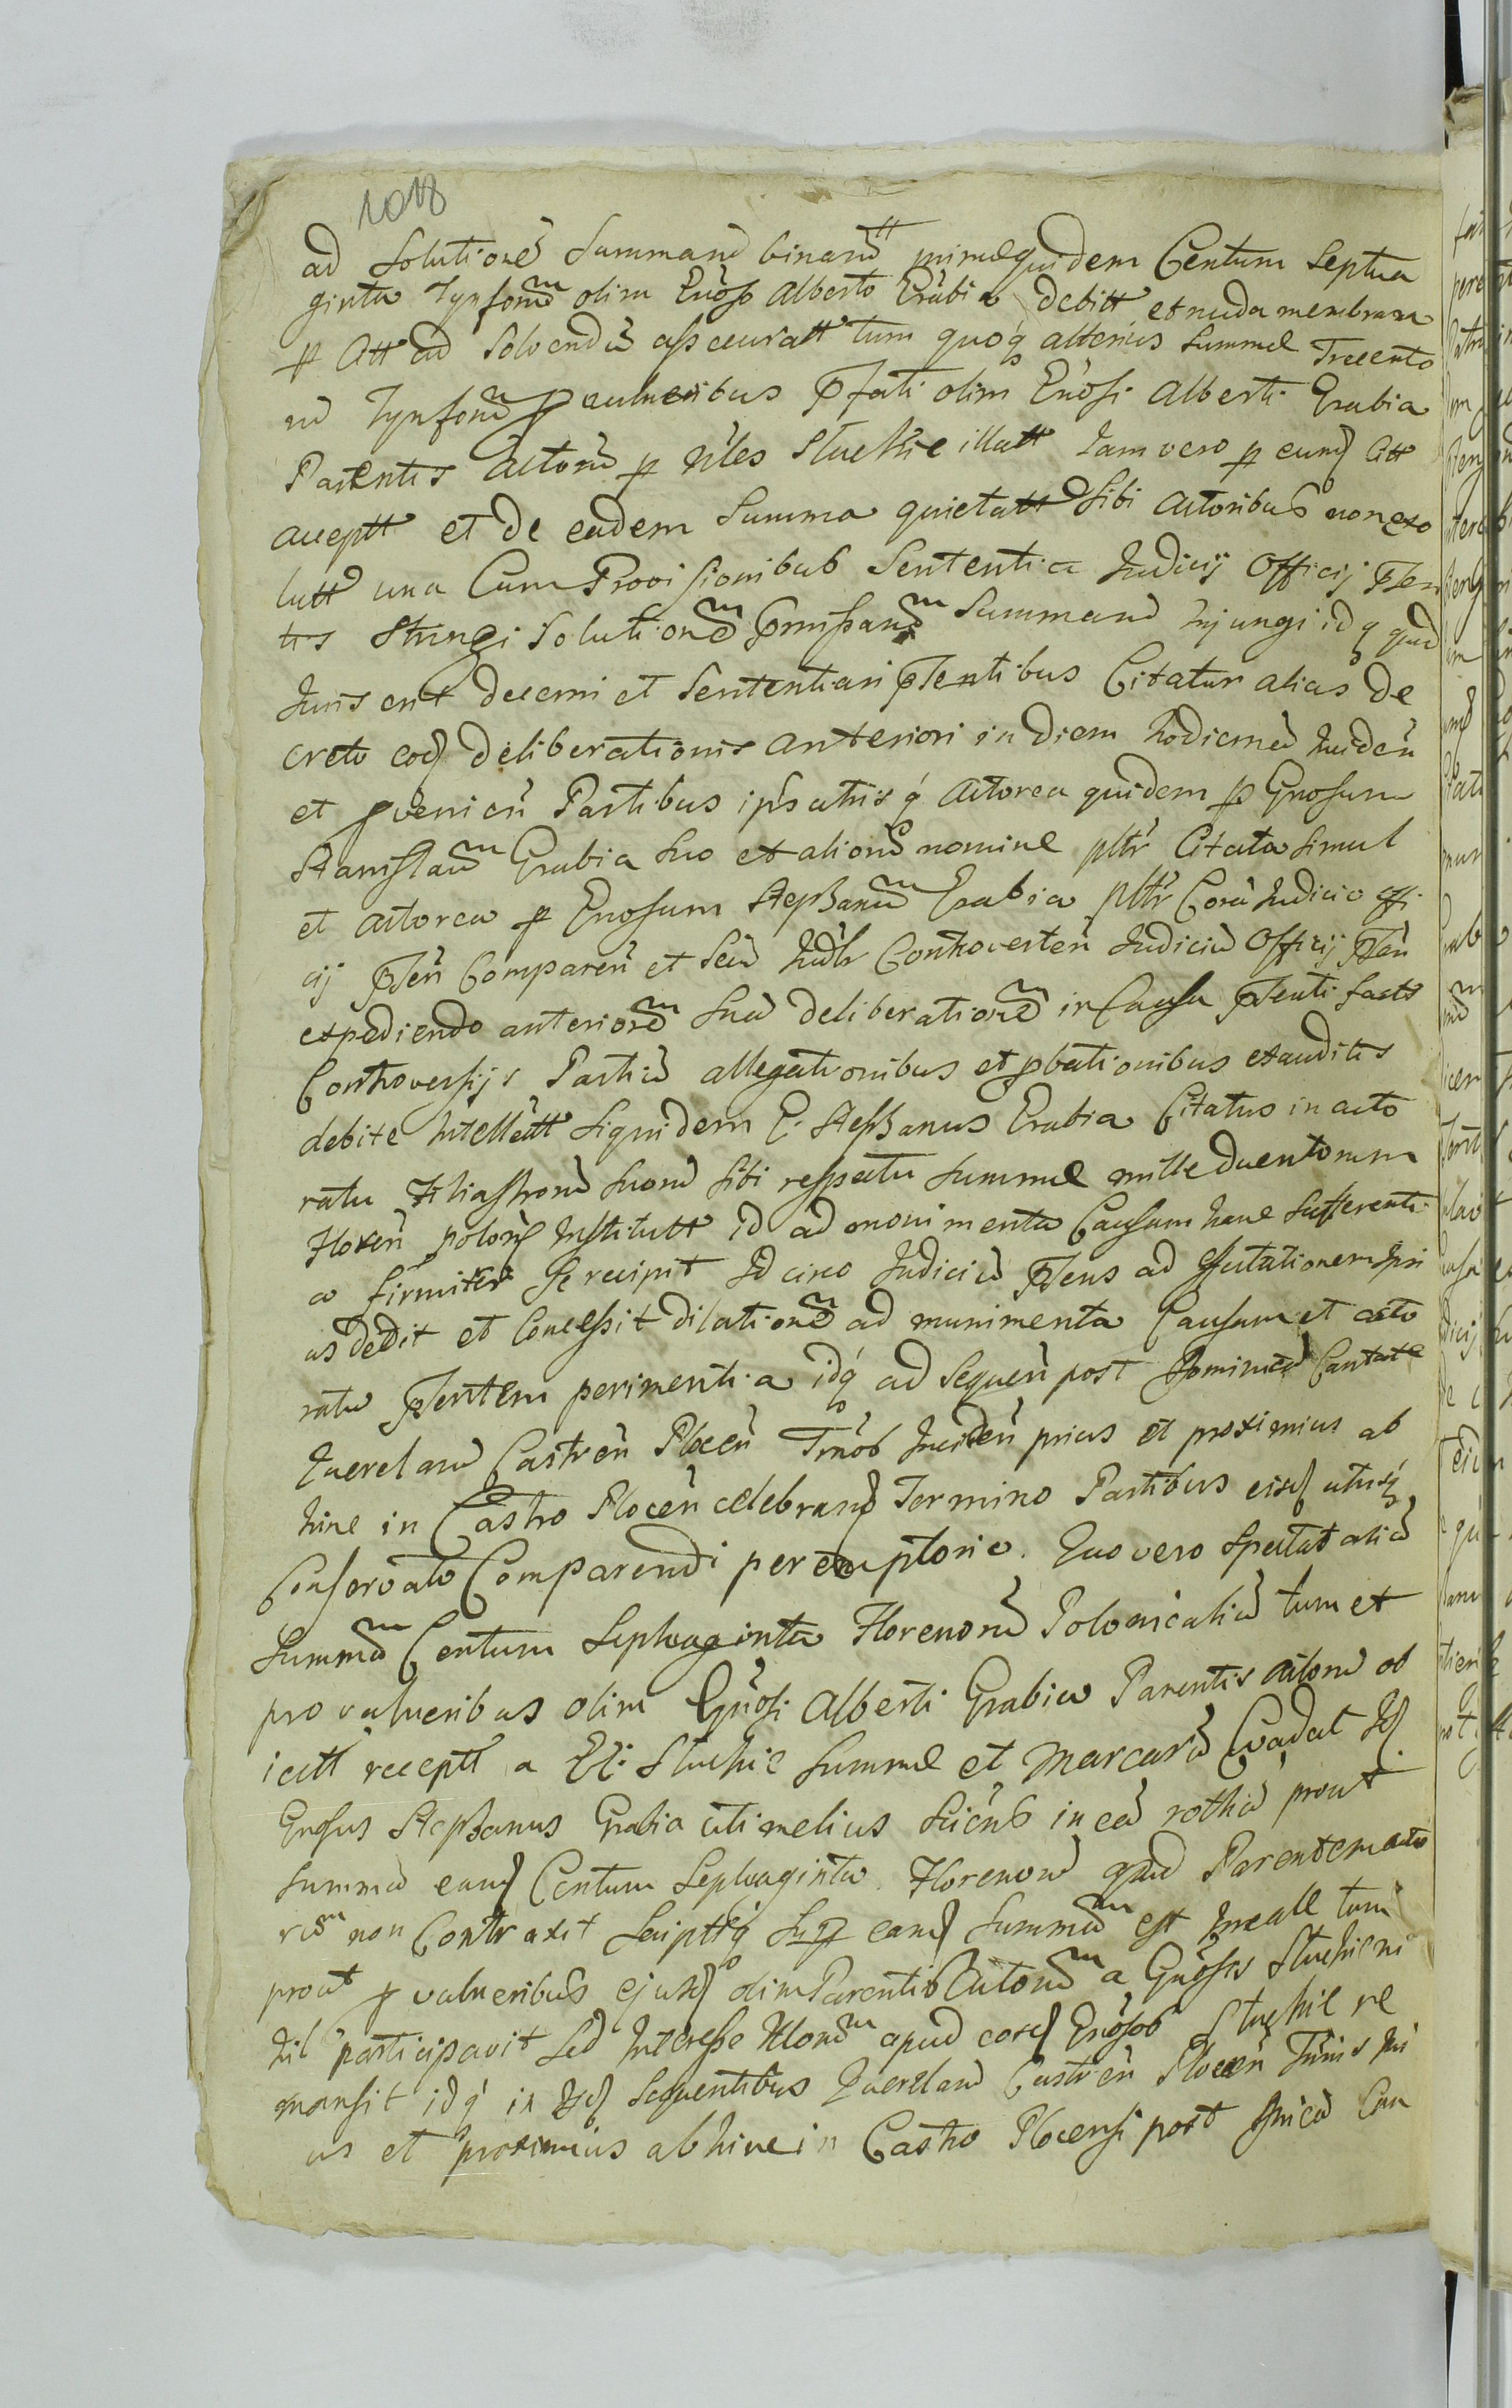 1018
ad Solutione Summaru binaru primae quidem Centum Septua
ginta Tynforu olim Gnoso Alberto Grabia debitt et nuda membrana
p Att ad Solvendu assecuratt tum quoq alterius Summae Trecento
ru Tynforu p vulneribus pfati olim Gnosi Alberti Grabia
Parentis Actoru p Nles Stuchie illatt Iam vero p eund Att
acceptt et de eadem Summa quietatt Sibi Actoribus non exo
lutt una Cum Provisionibus Sententia Iudicij Officij Psen
tis Stringi Solutione pmissaru Summaru Injungi idq quid
Iuris erit decerni et Sententiari psentibus Citatur alias De
creto eod deliberationis anteriori in diem hodiernu Inciden
et pvenien Partibus ipsa utrisq Actorea quidem p Gnosum
Stanislau Grabia Suo et alioru nomine pltr Citata Simul
et Actorea p Gnosum Stephanu Grabia pltr Cora Iudicio offi
cij psen Comparen et Seu Iudlr Controverten Iudiciu Officij psen
expediendo anteriore Sua deliberatione in Causa psenti facts
Controversijs Partiu allegationibus et pbationibus exauditis
debite Intellectt Siquidem G. Stephanus Grabia Citatus in acto
ratu Filiastroru Suoru Sibi respectu Summae mille ducentorum
Floren polon Institutt id ad monimenta Causam hanc Sufferenti
a firmiter Se recipit Id circo Iudiciu psens ad
us dedit et Concessit dilatione ad munimenta Causam et acto
ratu psentem perimentia idq ad Sequen post Dominica Cantate
Querelaru Castren Plocen Tmos Inciden prius et proximius ab
hinc in Castro Plocen celebrand Termino Partibus eisd utrisq
Conservato Comparendi peremptorio. Quo vero Spectat alia
Summa Centum Septuaginta Florenoru Polonicaliu tum et
pro vulneribus olim Gnosi Alberti Grabia Parentis Actoru ob
icitt receptt a Stuchie Summae et Marcaru Evadat Id
Gnosus Stephanus Grabia uti melius Sciens in ea rotha prout
Summa eand Centum Septuaginta Florenoru apud Parentem acto
ru non Contraxit Scripttq Sup eand Summa est tum
prout p vulneribus ejusd olim Parentis Actoru a Gnosis Stuchie ni
hil participavit Sed Interesse Illoru apud eosd Gnosos Stuchie re
mansit idq in Iisd Sequentibus Querelaru Castren Plocen Tmis
us et proximius ab hinc in Castro Plocensi post Dnica Can